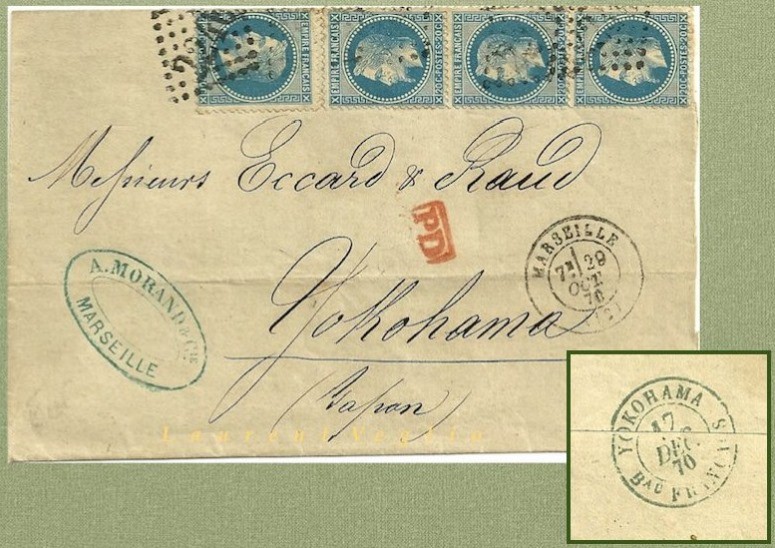 EMPIRE FRANÇAIS
EMPIRE FRANÇAIS 20C·POSTES·20C
EMPIRE FRANÇAIS 20C·POSTES·20C
EMPIRE FRANÇAIS 20C·POSTES·20C
Messieurs Eccard & Raud
PD
MARSEILLE
29
OCT.
70
A. MORAND & CIE
MARSEILLE
Yokohama
(Japon)
YOKOHAMA
17
DEC.
70
BAU FRANÇAIS